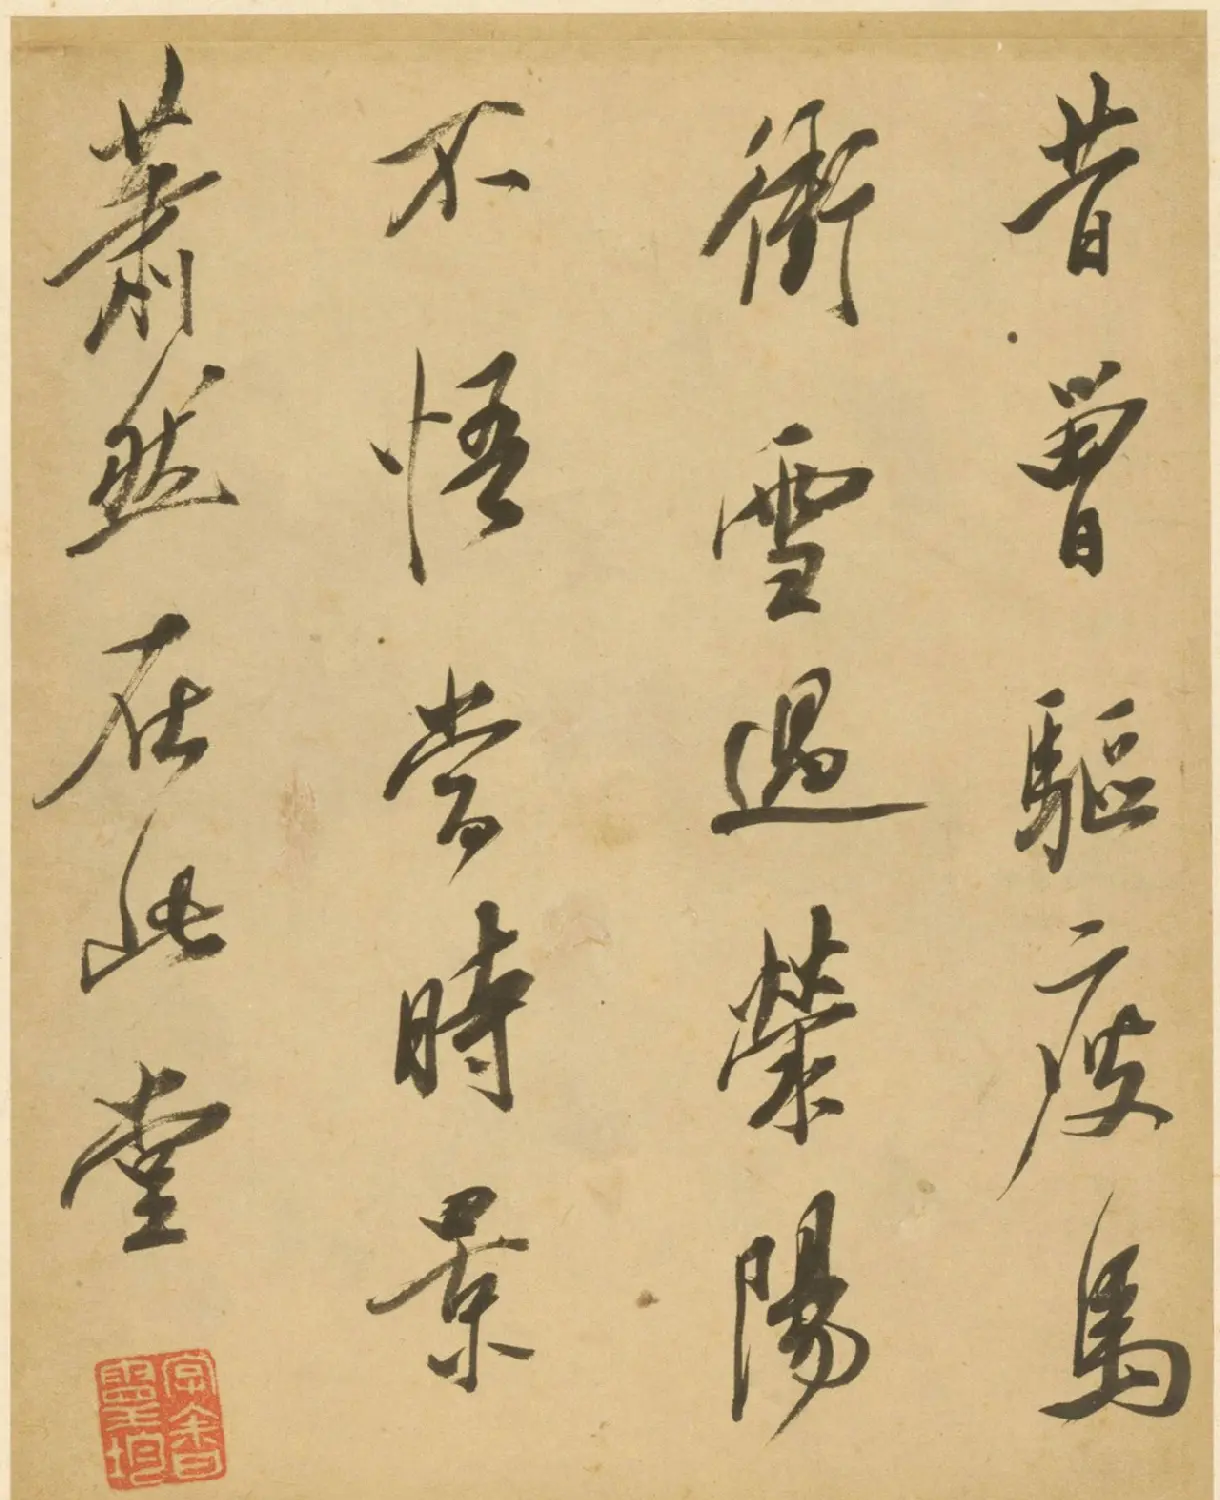 昔曾驅瘦馬
衝雪過榮陽
不悟當時景
蕭然在此堂